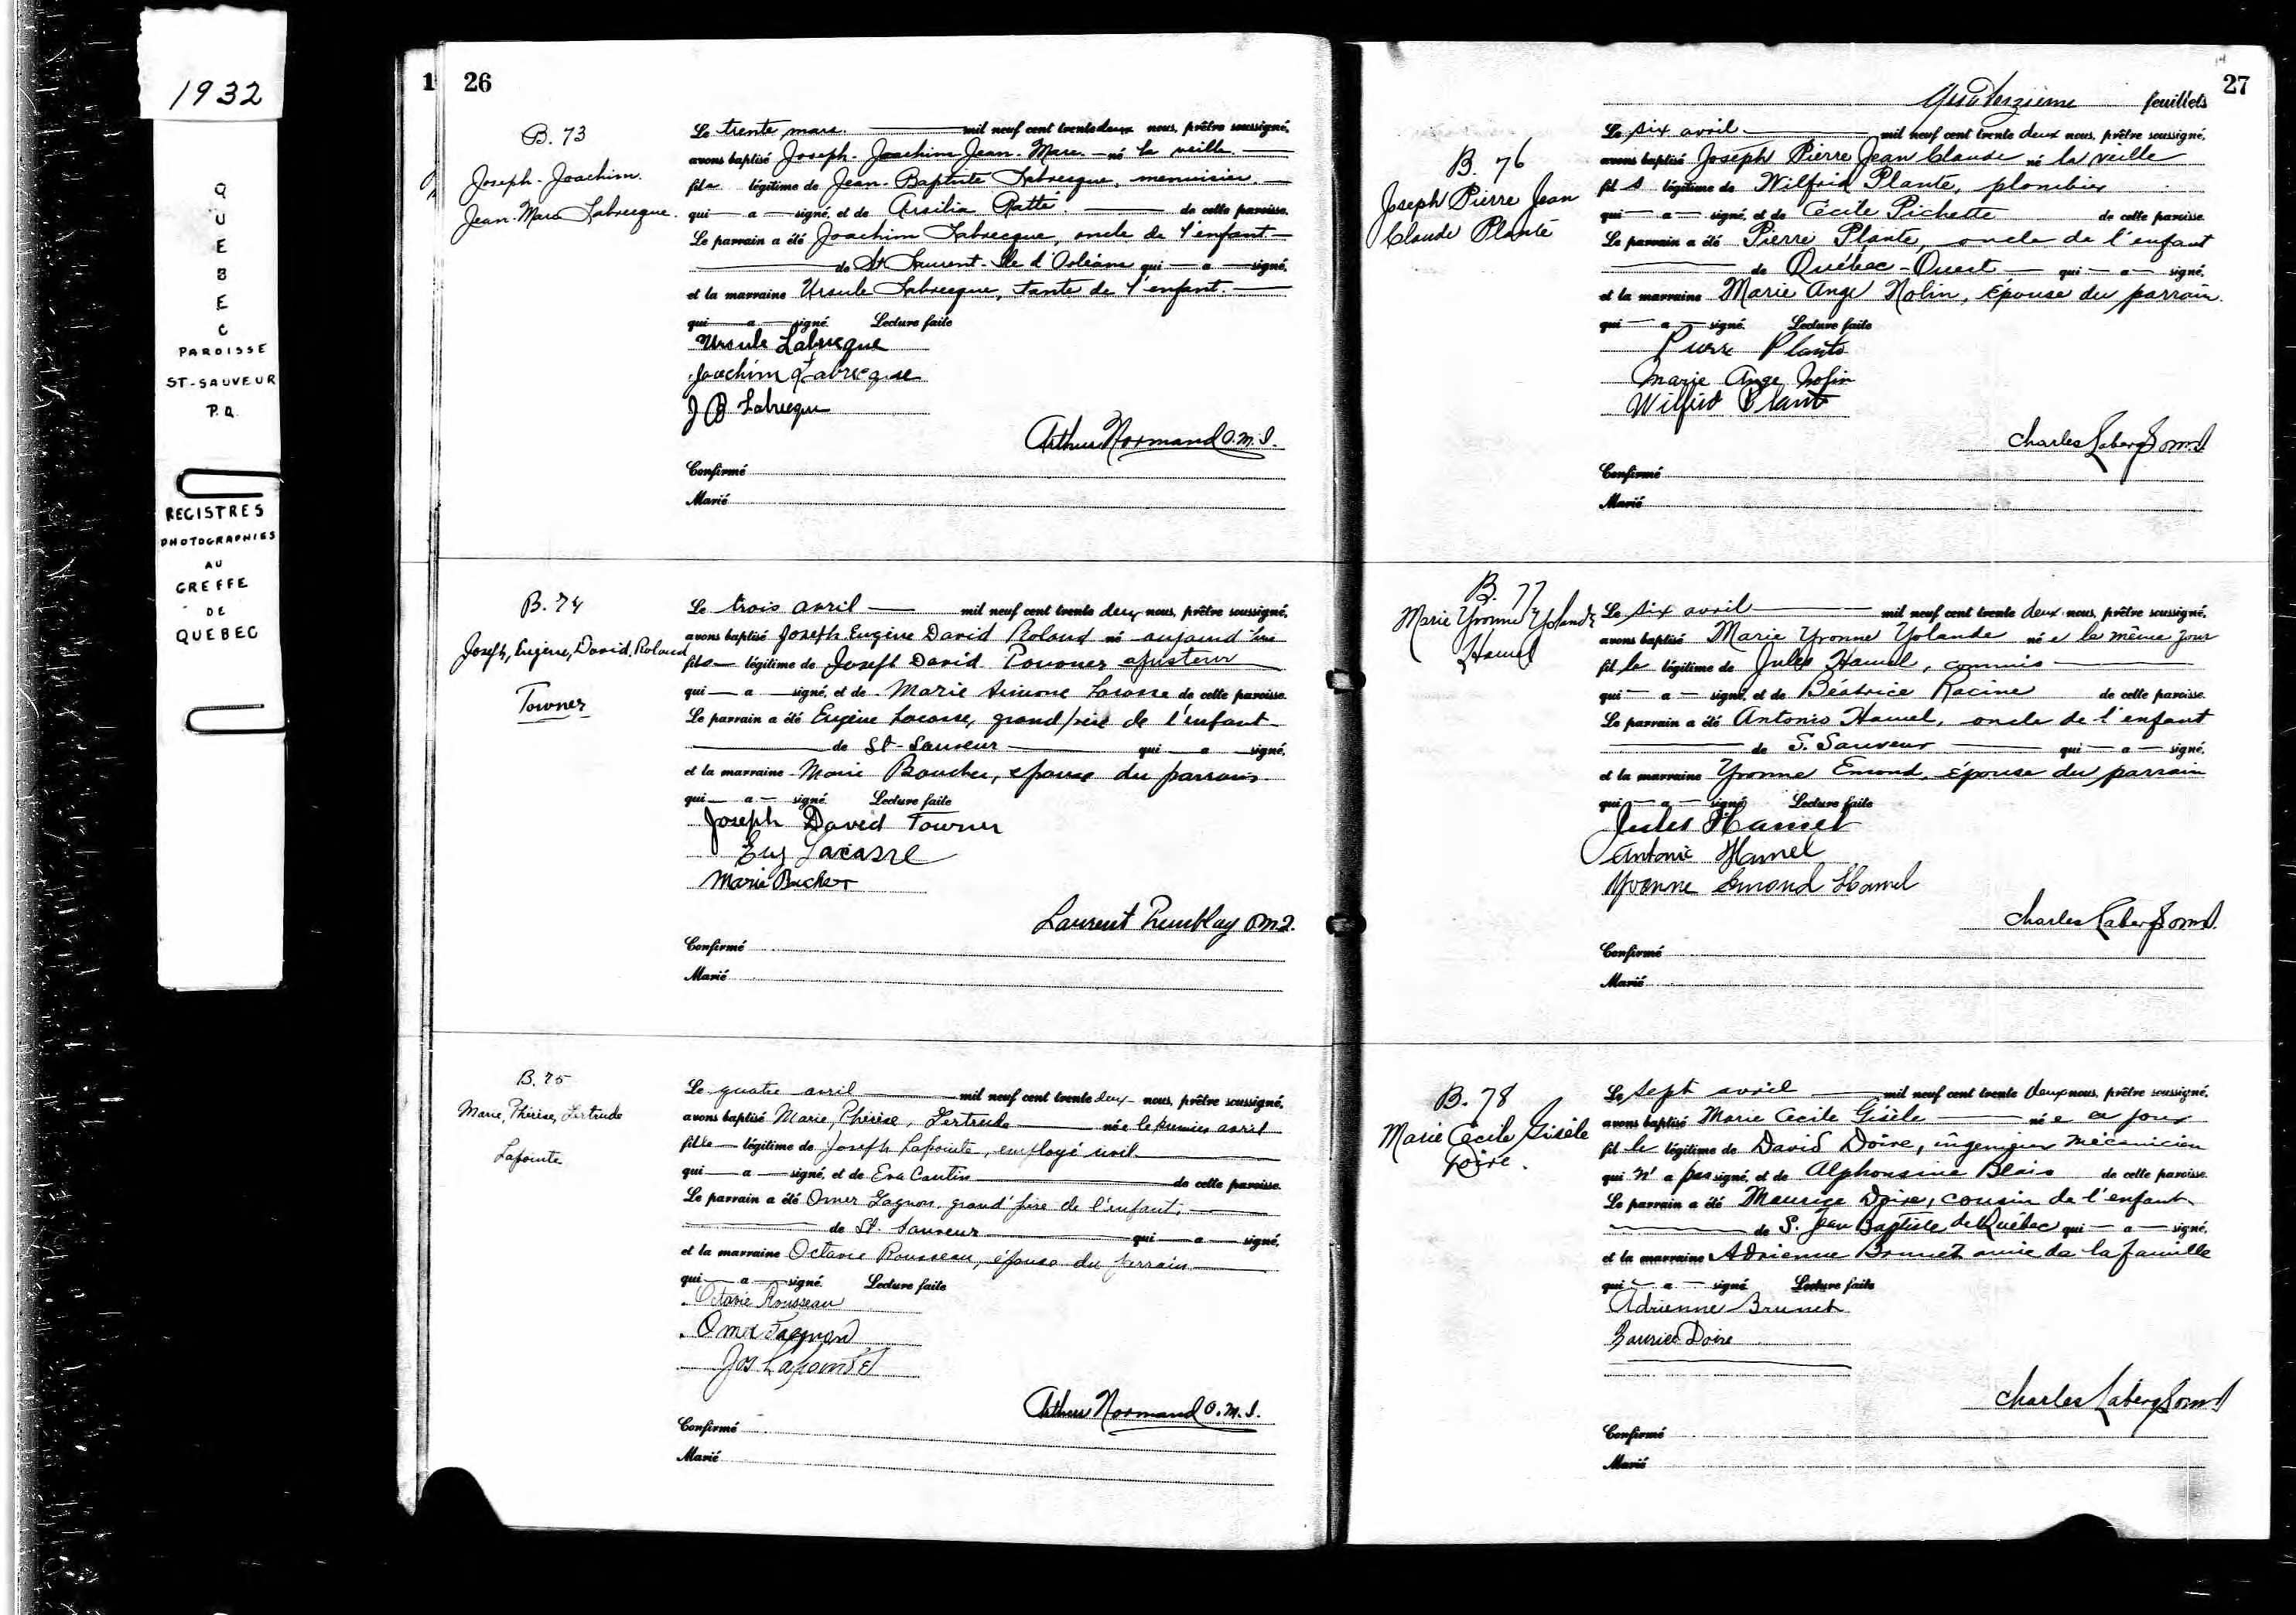 1932
QUEBEC
PAROISSE
ST-SAUVEUR
P.Q.
REGISTRES
PHOTOGRAPHIES
AU
GREFFE
DE
QUEBEC
1 26
B. 73
Joseph-Joachim
Jean-Marc Labrecque.
Le trente mars. mil neuf cent trente deux nous, prêtre soussigné,
avons baptisé Joseph-Joachim Jean-Marc né la veille.
fils légitime de Jean-Baptiste Labrecque, menuisier.
qui a signé, et de Arsilia Ratté. de cette paroisse.
Le parrain a été Joachim Labrecque, oncle de l'enfant
de St Laurent-Ile d'Orléans qui a signé,
et la marraine Ursule Labrecque, tante de l'enfant.
qui a signé. Lecture faite
Ursule Labrecque
Joachim Labrecque
J B Labrecque
Arthur Normand O.M.I.
Confirmé
Marié
B. 74
Joseph, Eugène, David, Roland
Towner
Le trois avril mil neuf cent trente deux nous, prêtre soussigné,
avons baptisé Joseph Eugène David Roland né aujourd'hui
fils légitime de Joseph David ajusteur
qui a signé, et de Marie Simone Lacasse de cette paroisse.
Le parrain a été Eugène Lacasse, grand père de l'enfant
de St-Sauveur qui a signé,
et la marraine Marie Boucher, épouse du parrain
qui a signé. Lecture faite
Joseph David Towner
Eug Lacasse
Marie Bucher
Laurent Tremblay O.M.I.
Confirmé
Marié
B. 75
Marie, Thérèse, Gertrude
Lapointe
Le quatre avril mil neuf cent trente deux nous, prêtre soussigné,
avons baptisé Marie, Thérèse, Gertrude née le premier avril
fille légitime de Joseph Lapointe, employé civil
qui a signé, et de Eva Cantin de cette paroisse.
Le parrain a été Omer Gagnon, grand'père de l'enfant,
de St. Sauveur qui a signé,
et la marraine Octavie Rousseau, épouse du parrain
qui a signé. Lecture faite
Octavie Rousseau
Omer Gagnon
Jos Lapointe
Arthur Normand O.M.I.
Confirmé
Marié
27
Quatorzième feuillets
B. 76
Joseph Pierre Jean
Claude Plante
Le six avril mil neuf cent trente deux nous, prêtre soussigné,
avons baptisé Joseph Pierre Jean Claude né la veille
fils légitime de Wilfrid Plante, plombier
qui a signé, et de Cécile Pichette de cette paroisse.
Le parrain a été Pierre Plante, oncle de l'enfant
de Québec-Ouest qui a signé,
et la marraine Marie Ange Nolin, épouse du parrain.
qui a signé. Lecture faite
Pierre Plante
Marie Ange Nolin
Wilfrid Plante
Charles Laberge o.m.i.
Confirmé
Marié
B. 77
Marie Yvonne Yolande
Hamel
Le six avril mil neuf cent trente deux nous, prêtre soussigné,
avons baptisé Marie Yvonne Yolande née le même jour
fille légitime de Jules Hamel, commis
qui a signé, et de Béatrice Racine de cette paroisse.
Le parrain a été Antonio Hamel, oncle de l'enfant
de S. Sauveur qui a signé,
et la marraine Yvonne Emond, épouse du parrain
qui a signé. Lecture faite
Jules Hamel
Antonio Hamel
Yvonne Emond Hamel
Charles Laberge o.m.i.
Confirmé
Marié
B. 78
Marie Cécile Gisèle
Doire.
Le sept avril mil neuf cent trente deux nous, prêtre soussigné,
avons baptisé Marie Cecile Gisèle née ce jour
fille légitime de David Doire, ingénieur mécanicien
qui n'a pas signé, et de Alphonsine Blais de cette paroisse.
Le parrain a été Maurice Doire, cousin de l'enfant
de S. Jean Baptiste de Québec qui a signé,
et la marraine Adrienne Brunet amie de la famille
qui a signé. Lecture faite
Adrienne Brunet
Doire
Charles Laberge o.m.i.
Confirmé
Marié